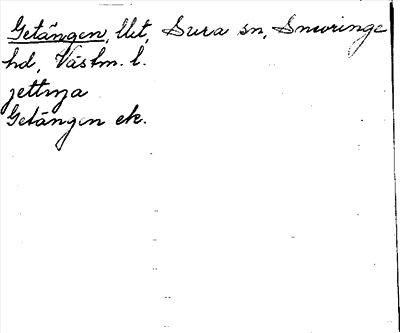 Getängen, llt, Sura sn, Snevringe
hd, Västm. l.
jettnja
Getängen ek.